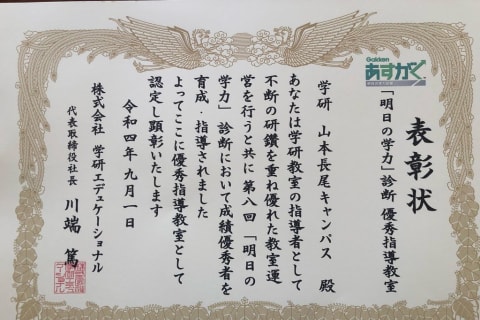 Gakken
あすがく
表彰状
「明日の学力」診断 優秀指導教室
学研 山本長尾キャンパス 殿
あなたは学研教室の指導者として
不断の研鑽を重ね優れた教室運
営を行うと共に第八回「明日の
学力」診断において成績優秀者を
育成・指導されました
よってここに優秀指導教室として
認定し顕彰いたします
令和四年九月一日
株式会社 学研エデュケーショナル
代表取締役社長 川端 篤